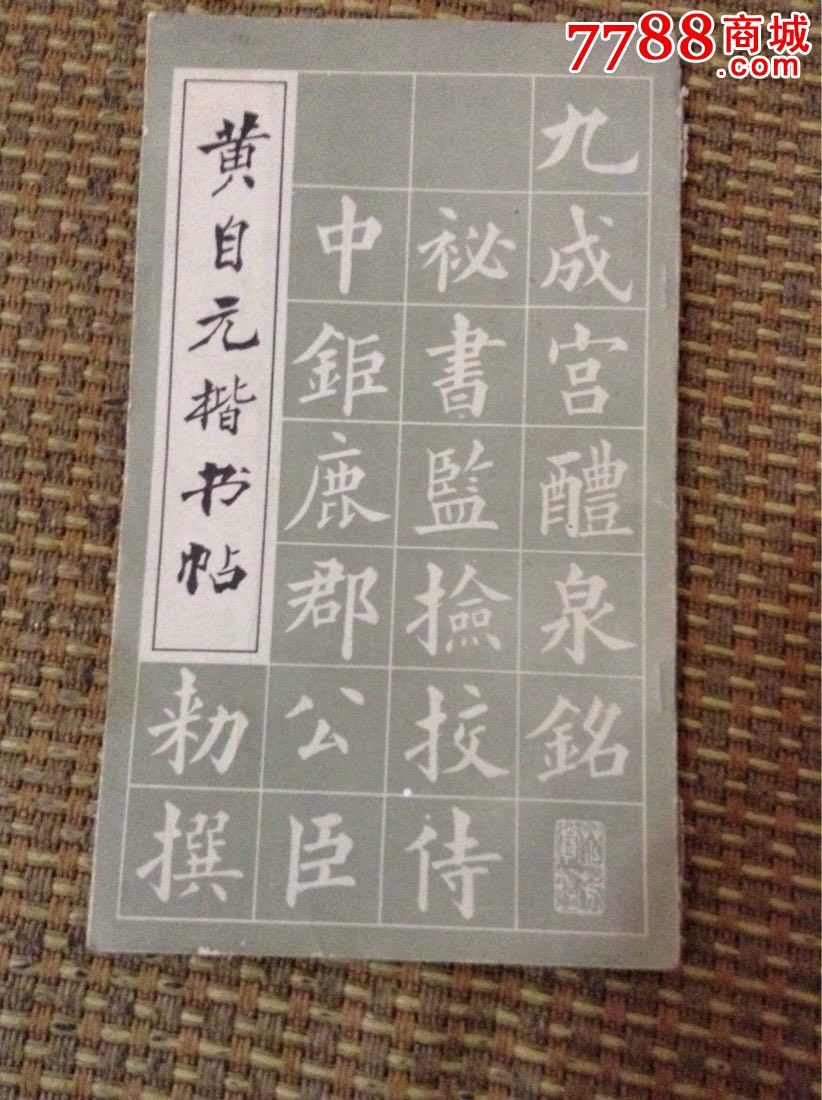 7788商城
.com
黄自元楷书帖
九成宫醴泉銘
祕書監撿挍侍
中鉅鹿郡公臣
勑撰